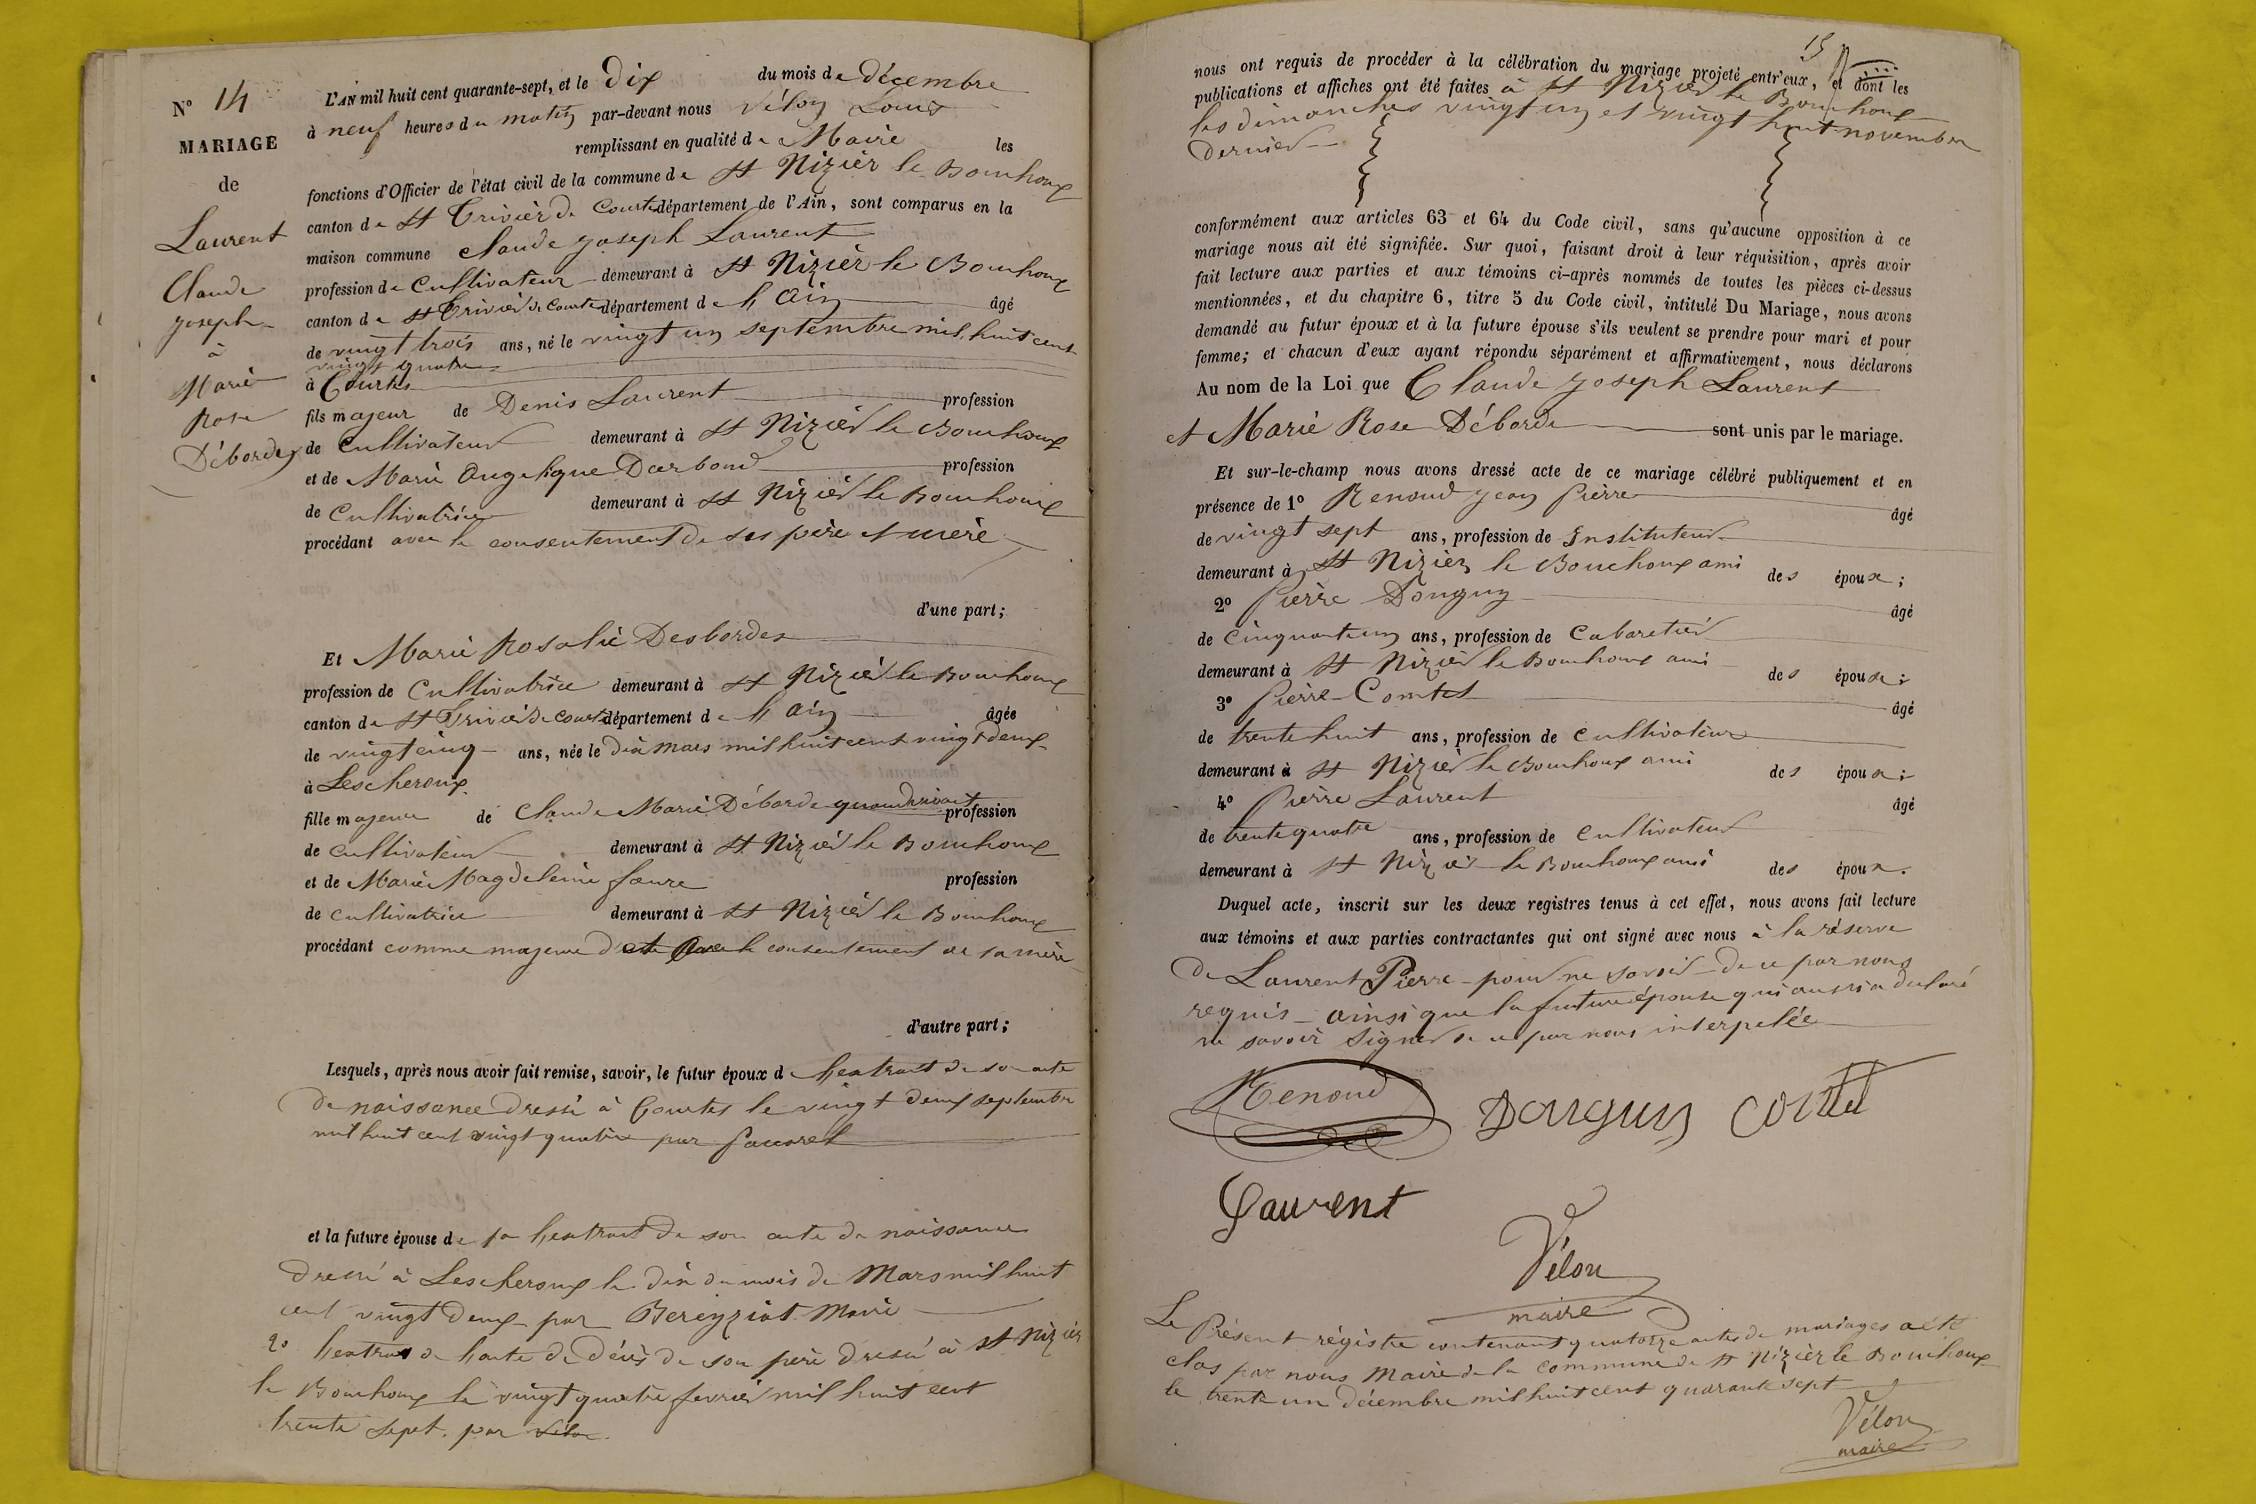 N° 14
MARIAGE
de
Laurent
Claude
joseph
à
Marie
Rose
Débordes
L'AN mil huit cent quarante-sept, et le Dix du mois de décembre
à neuf heures du matin par-devant nous Vélon Louis
remplissant en qualité de Maire les
fonctions d'Officier de l'état civil de la commune de St Nizier le Bouchoux
canton de St Trivier de Courtes département de l'Ain, sont comparus en la
maison commune Claude joseph Laurent
profession de Cultivateur demeurant à St Nizier le Bouchoux
canton de St Trivier de Courtes département de l'Ain âgé
de vingt trois ans, né le vingt un septembre mil huit cent
vingt quatre
à Courtes
fils majeur de Denis Laurent profession
de Cultivateur demeurant à St Nizier le Bouchoux
et de Marie Angelique Darband profession
de Cultivatrice demeurant à St Nizier le Bouchoux
procédant avec le consentement de ses père et mère
d'une part;
Et Marie Rosalie Desbordes
profession de Cultivatrice demeurant à St Nizier le Bouchoux
canton de St Trivier de Courtes département de l'Ain âgée
de vingt cinq ans, née le dix mars mil huit cent vingt deux
à Lescheroux
fille majeure de Claude Marie Déborde quand vivait profession
de Cultivateur demeurant à St Nizier le Bouchoux
et de Marie Magdeleine faure profession
de cultivatrice demeurant à St Nizier le Bouchoux
procédant comme majeure avec le consentement de sa mère
d'autre part;
Lesquels, après nous avoir fait remise, savoir, le futur époux de l'extrait de son acte
de naissance dressé à Courtes le vingt deux septembre
mil huit cent vingt quatre par
et la future épouse de 1° l'extrait de son acte de naissance
dressé à Lescheroux le dix du mois de Mars mil huit
cent vingt deux par Bereyziat Marie
2° l'extrait de l'acte de décès de son père dressé à St Nizier
le Bouchoux le vingt quatre fevrier mil huit cent
trente sept par Vélon
15
nous ont requis de procéder à la célébration du mariage projeté entr'eux, et dont les
publications et affiches ont été faites à St Nizier le Bouchoux
les dimanches vingt un et vingt huit novembre
dernier
conformément aux articles 63 et 64 du Code civil, sans qu'aucune opposition à ce
mariage nous ait été signifiée. Sur quoi, faisant droit à leur réquisition, après avoir
fait lecture aux parties et aux témoins ci-après nommés de toutes les pièces ci-dessus
mentionnées, et du chapitre 6, titre 5 du Code civil, intitulé Du Mariage, nous avons
demandé au futur époux et à la future épouse s'ils veulent se prendre pour mari et pour
femme; et chacun d'eux ayant répondu séparément et affirmativement, nous déclarons
Au nom de la Loi que Claude joseph Laurent
et Marie Rose Déborde sont unis par le mariage.
Et sur-le-champ nous avons dressé acte de ce mariage célébré publiquement et en
présence de 1° Renoud jean pierre âgé
de vingt sept ans, profession de Instituteur
demeurant à St Nizier le Bouchoux ami des époux;
2° Pierre Donguy âgé
de cinquante un ans, profession de Cabaretier
demeurant à St Nizier le Bouchoux ami des époux;
3° Pierre Comtet âgé
de trente huit ans, profession de Cultivateur
demeurant à St Nizier le Bouchoux ami des époux;
4° Pierre Laurent âgé
de trente quatre ans, profession de Cultivateur
demeurant à St Nizier le Bouchoux ami des époux.
Duquel acte, inscrit sur les deux registres tenus à cet effet, nous avons fait lecture
aux témoins et aux parties contractantes qui ont signé avec nous à la réserve
de Laurent Pierre pour ne savoir de ce par nous
requis ainsi que la future épouse qui aussi a déclaré
ne savoir signer de ce par nous interpelée
Renoud Donguy Comtet
Laurent
Vélon
maire
Le Présent régistre contenant quatorze actes de mariages a été
clos par nous Maire de la commune de St Nizier le Bouchoux
le trente un décembre mil huit cent quarante sept
Vélon
maire